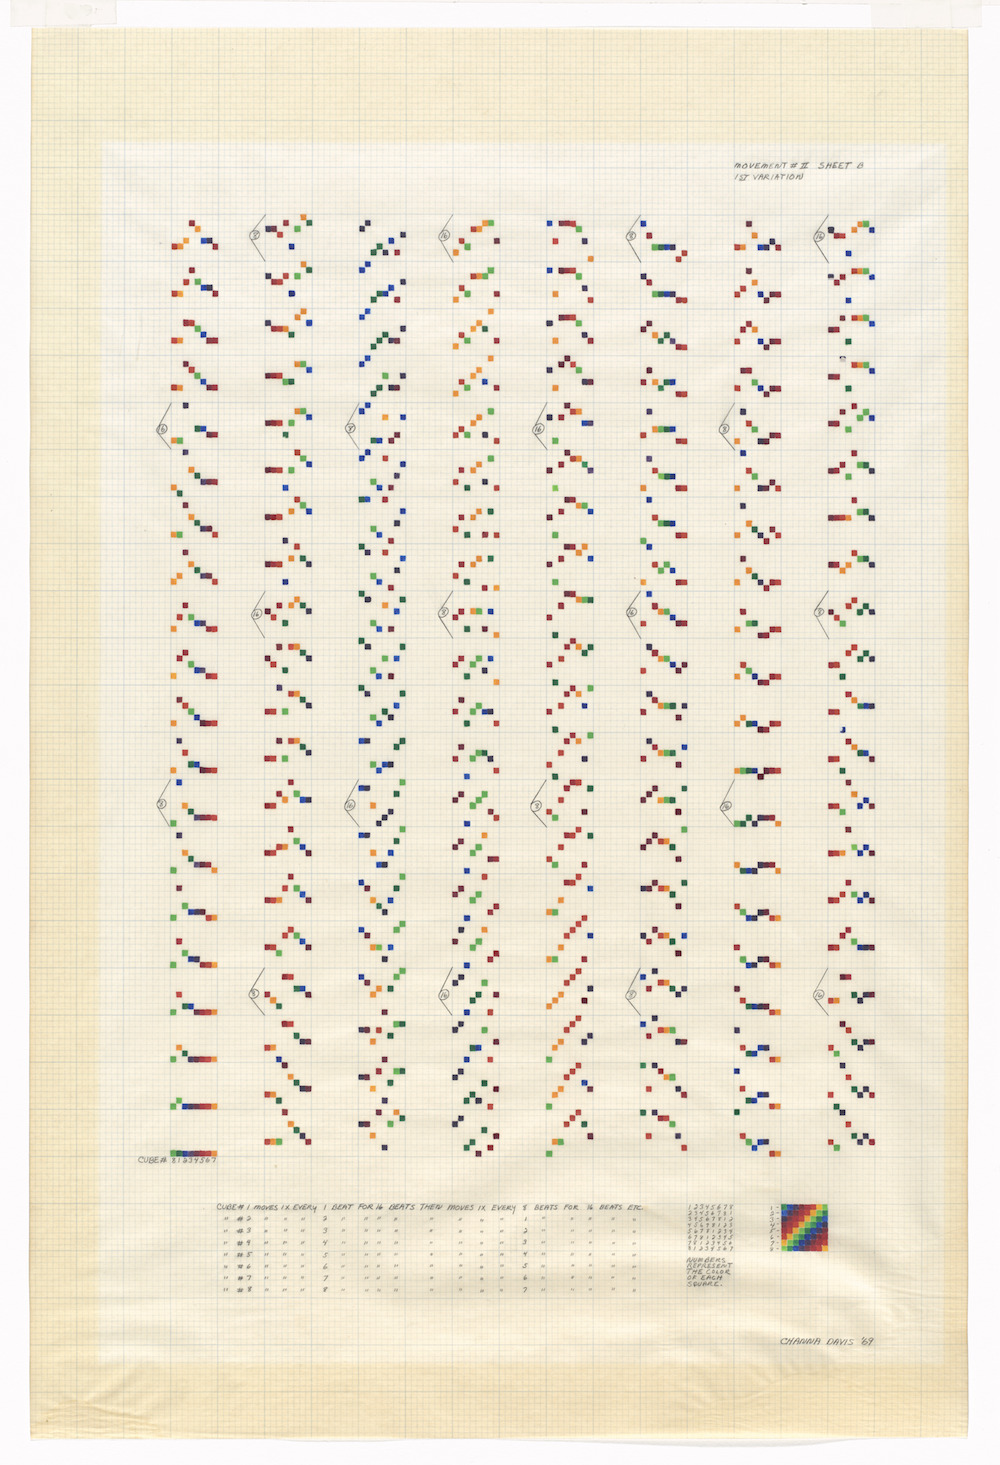 MOVEMENT # II SHEET B
1ST VARIATION
8
16
8
16
16
8
16
8
16
8
16
8
8
16
8
16
8
16
8
16
CUBE# 81234567
CUBE# 1 MOVES 1X EVERY 1 BEAT FOR 16 BEATS THEN MOVES 1X EVERY 8 BEATS FOR 16 BEATS ETC.
" #2 " " " 2 " " " " " " " " 1 " " " "
" #3 " " " 3 " " " " " " " " 2 " " " "
" #4 " " " 4 " " " " " " " " 3 " " " "
" #5 " " " 5 " " " " " " " " 4 " " " "
" #6 " " " 6 " " " " " " " " 5 " " " "
" #7 " " " 7 " " " " " " " " 6 " " " "
" #8 " " " 8 " " " " " " " " 7 " " " "
12345678
23456781
34567812
45678123
56781234
67812345
78123456
81234567
1-
2-
3-
4-
5-
6-
7-
8-
NUMBERS
REPRESENT
THE COLOR
OF EACH
SQUARE.
CHANNA DAVIS '69